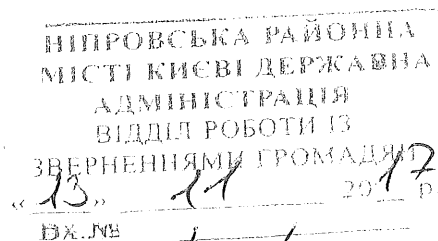 НІПРОВСЬКА РАЙОННА
МІСТІ КИЄВІ ДЕРЖАВНА
АДМІНІСТРАЦІЯ
ВІДДІЛ РОБОТИ ІЗ
ЗВЕРНЕННЯМИ ГРОМАДЯН
«13» 11 2017 р
ВХ.№